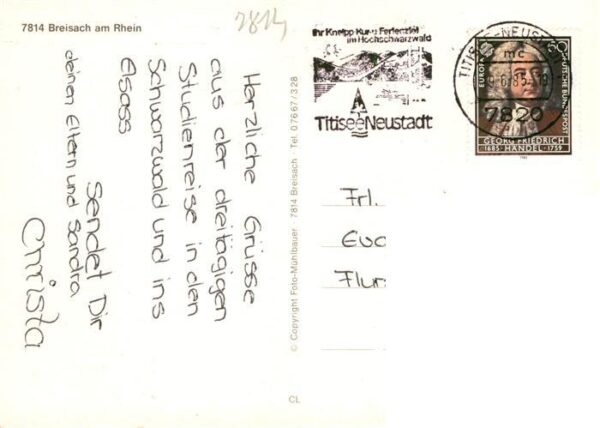 7814 Breisach am Rhein
7814
Herzliche Grüsse
aus der dreitägigen
Studienreise in den
Schwarzwald und ins
Elsass
Sendet Dir
deinen Eltern und Sandra
Christa
© Copyright Foto-Mühlbauer · 7814 Breisach · Tel. 07667/328
CL
Ihr Kneipp Kur- u. Ferienziel
im Hochschwarzwald
TitiseeNeustadt
TITISEE-NEUSTADT
mc
7820
EUROPA
60
DEUTSCHE BUNDESPOST
GEORG FRIEDRICH
1685 HÄNDEL 1759
Frl.